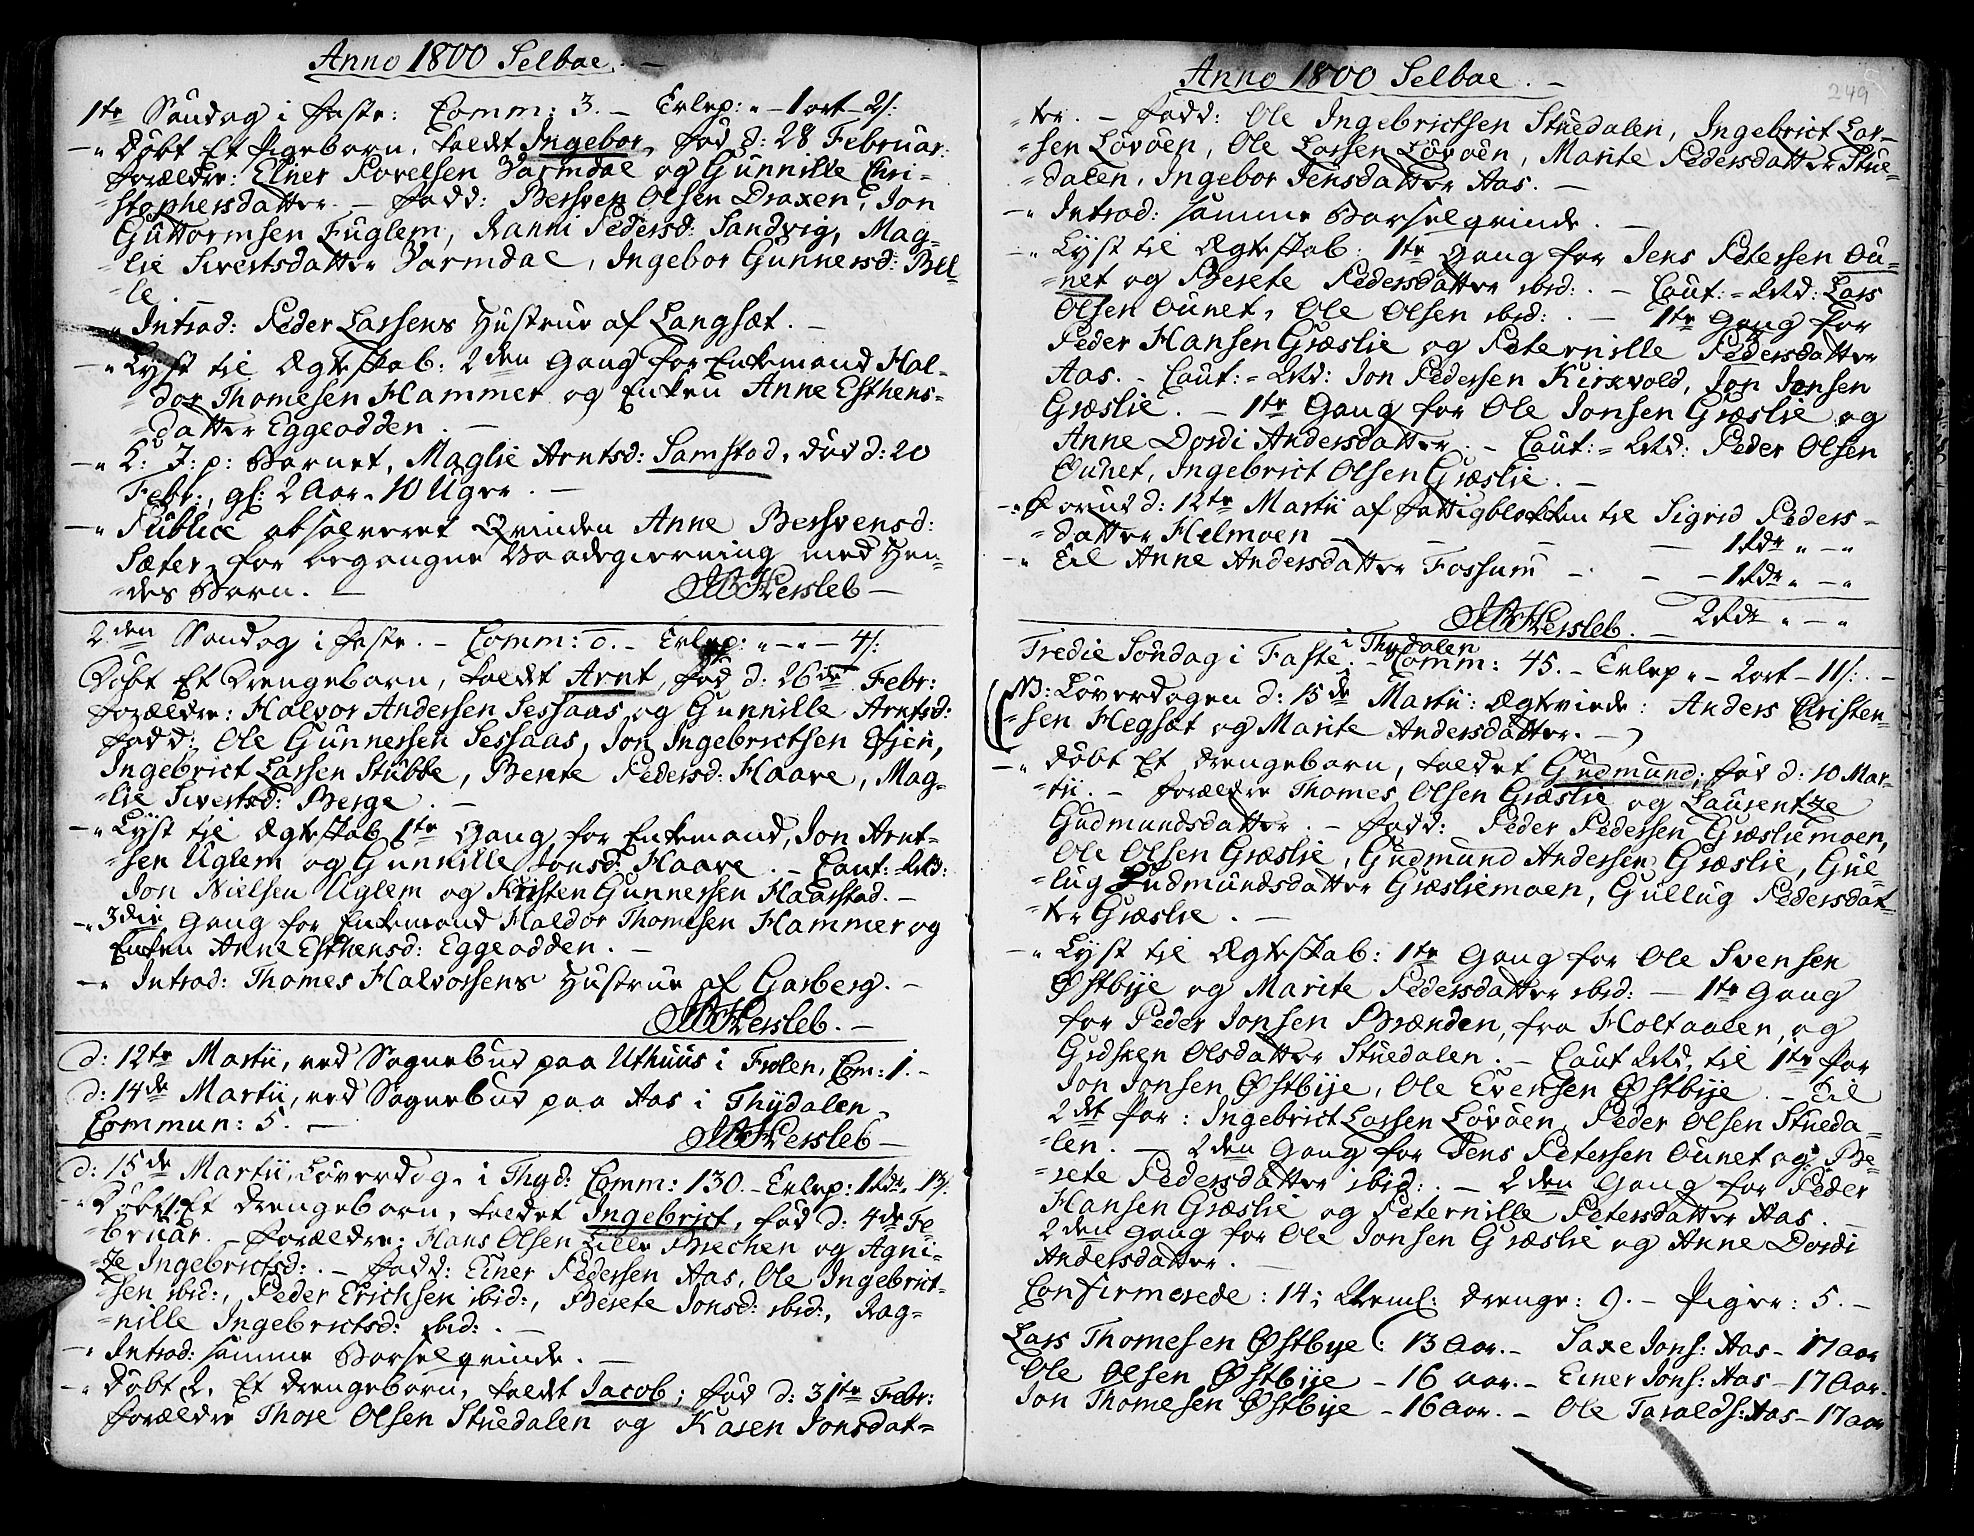 Anno 1800 Selboe. –
1te Søndag i Faste: Comm: 3. – Exlep: „ – 1 ort – 2 s:
–„ Døbt Et Pigebarn, kaldet Ingebor, fød d: 28 Februar:
Forældre: Elner Povelsen Varmdal og Gunnille Chri-
-stophersdatter. – Fadd: Bersven Olsen Draxen, Jon
Guttormsen Fuglem, Ranni Pedersd: Sandvig, Mag-
-lie Sivertsdatter Varmdal, Ingebor Gunnersd: Bell-
-le
–„ Introd: Peder Larsens Hustrue af Langsæt. –
–„ Lyst til Ægteskab: 2den Gang for Enkemand Hal-
-dor Thomesen Hammer og Enken Anne Esthens-
-datter Eggeodden. –
–„ B: J: p: Barnet, Maglie Arntsd: Samstad, død d: 20
Febr:, gl: 2 Aar. 10 Uger. –
–„ Publice absolveret Qvinden Anne Bersvensd:
Sæter, for begangne Vaadegierning med Hen-
-des Barn. – Hersleb –
2den Søndag i Faste. – Comm: 0. – Exlep: „ – „ – 4 s:
Døbt Et Drengebarn, kaldet Arnt, fød d: 26de Febr:
Forældre: Halvor Andersen Sessaas og Gunnille Arntsd:
Fadd: Ole Gunnersen Sessaas, Jon Ingebrictsen Efjen,
Ingebrict Larsen Stubbe, Berete Pedersd: Haare, Mag-
-lie Sivertsd: Berge. –
–„ Lyst til Ægteskab 1te Gang for Enkemand, Jon Arnt-
-sen Uglem og Gunnille Jonsd: Haave. – Caut:
Jon Nielsen Uglem og Kristen Gunnersen Haarstad. –
–„ 3die Gang for Enkemand Haldor Thomesen Hammer og
Enken Anne Esthensd: Eggeodden. –
–„ Introd: Thomes Halvorsens Hustrue af Garberg. –
Hersleb. –
d: 12te Martii, ved Sognebud paa Uthuus i Frolen, Com: 1. –
d: 14de Martii, ved Sognebud paa Aas i Thydalen.
Commun: 5. – Hersleb –
d: 15de Martii, Løverdag, i Thyd: Comm: 130. – Exlep: 1 Rdr. „ 13 s:
–„ Døbt: Et Drengebarn, kaldet Ingebrict, fød d: 4de Fe-
-bruar. – Forældre: Hans Olsen Lille Brechen og Agni-
-te Ingebrictsd: . – Fadd: Einer Pedersen Aas, Ole Ingebrict-
-sen ibid:, Peder Erichsen ibid:, Berete Jonsd: ibid:, Rag-
-nille Ingebrictsd: ibid: . –
–„ Introd: samme Barselqvinde. –
–„ Døbt 2, Et Drengebarn, kaldet Jacob; fød d: 31te Febr:
Forældre Thore Olsen Stuedalen og Karen Jonsdat-
Anno 1800 Selboe. –
249
-ter. – Fadd: Ole Ingebrictsen Stuedalen, Ingebrict Lar-
-sen Løvøen, Ole Larsen Løvøen, Marite Pedersdatter Stue-
-dalen, Ingebor Jensdatter Aas. –
–„ Introd: samme Barselqvinde. –
–„ Lyst til Ægteskab: 1te Gang for Jens Petersen Ou-
-net og Berete Pedersdatter ibid: . – Caut: Lars
Olsen Ounet, Ole Olsen ibid: . – 1te Gang for
Peder Hansen Græslie og Peternille Pedersdatter
Aas. – Caut: Jon Pedersen Kirkvold, Jon Jonsen
Græslie. – 1te Gang for Ole Jonsen Græslie og
Anne Dordi Andersdatter. – Caut: Peder Olsen
Ounet, Ingebrict Olsen Græslie. –
–„ Forud d: 12te Martii af Fattigblokken til Sigrid Peders-
-datter Helmoen – – – – 1 Rdr „ – „
–„ Til Anne Andersdatter Fossum – – – 1 Rdr „ – „
Hersleb. – 2 Rdr „ – „
Tredie Søndag i Faste i Thydalen. – Comm: 45. – Exlep „ – 2 ort – 11 s: –
(NB: Løverdagen d: 15de Martii: Ægteviede: Anders Christen-
-sen Hegset og Marite Andersdatter. – )
–„ Døbt Et Drengebarn, kaldet Gudmund, fød d: 10 Mar-
-tii. – Forældre Thomes Olsen Græslie og Laurentze
Gudmundsdatter. – Fadd: Peder Pedersen Græsliemoen,
Ole Olsen Græslie, Gudmund Andersen Græslie, Gul-
-lug Gudmundsdatter Græsliemoen, Gullug Pedersdat-
-ter Græslie. –
–„ Lyst til Ægteskab: 1te Gang for Ole Svensen
Østbye og Marite Pedersdatter ibid: – 1te Gang
for Peder Jonsen Brænden, fra Holtaalen, og
Gidsken Olsdatter Stuedalen. – Caut til 1te Par
Jon Jonsen Østbye, Ole Evensen Østbye. – Til
2det Par: Ingebrict Larsen Løvøen, Peder Olsen Stueda-
-len. – 2den Gang for Jens Petersen Ounet og Be-
-rete Pedersdatter ibid: . – 2den Gang for Peder
Hansen Græslie og Peternille Petersdatter Aas. –
2den Gang for Ole Jonsen Græslie og Anne Dordi
Andersdatter. –
Confirmerede: 14; Neml: Drenge: 9. – Piger: 5. –
Lars Thomesen Østbye: 13 Aar. – Saxe Jons: Aas – 17 aar
Ole Olsen Østbye – 16 aar. – Einer Jons: Aas – 17 Aar.
Jon Thomesen Østbye – 16 aar. – Ole Taralds: Aas – 17 aar